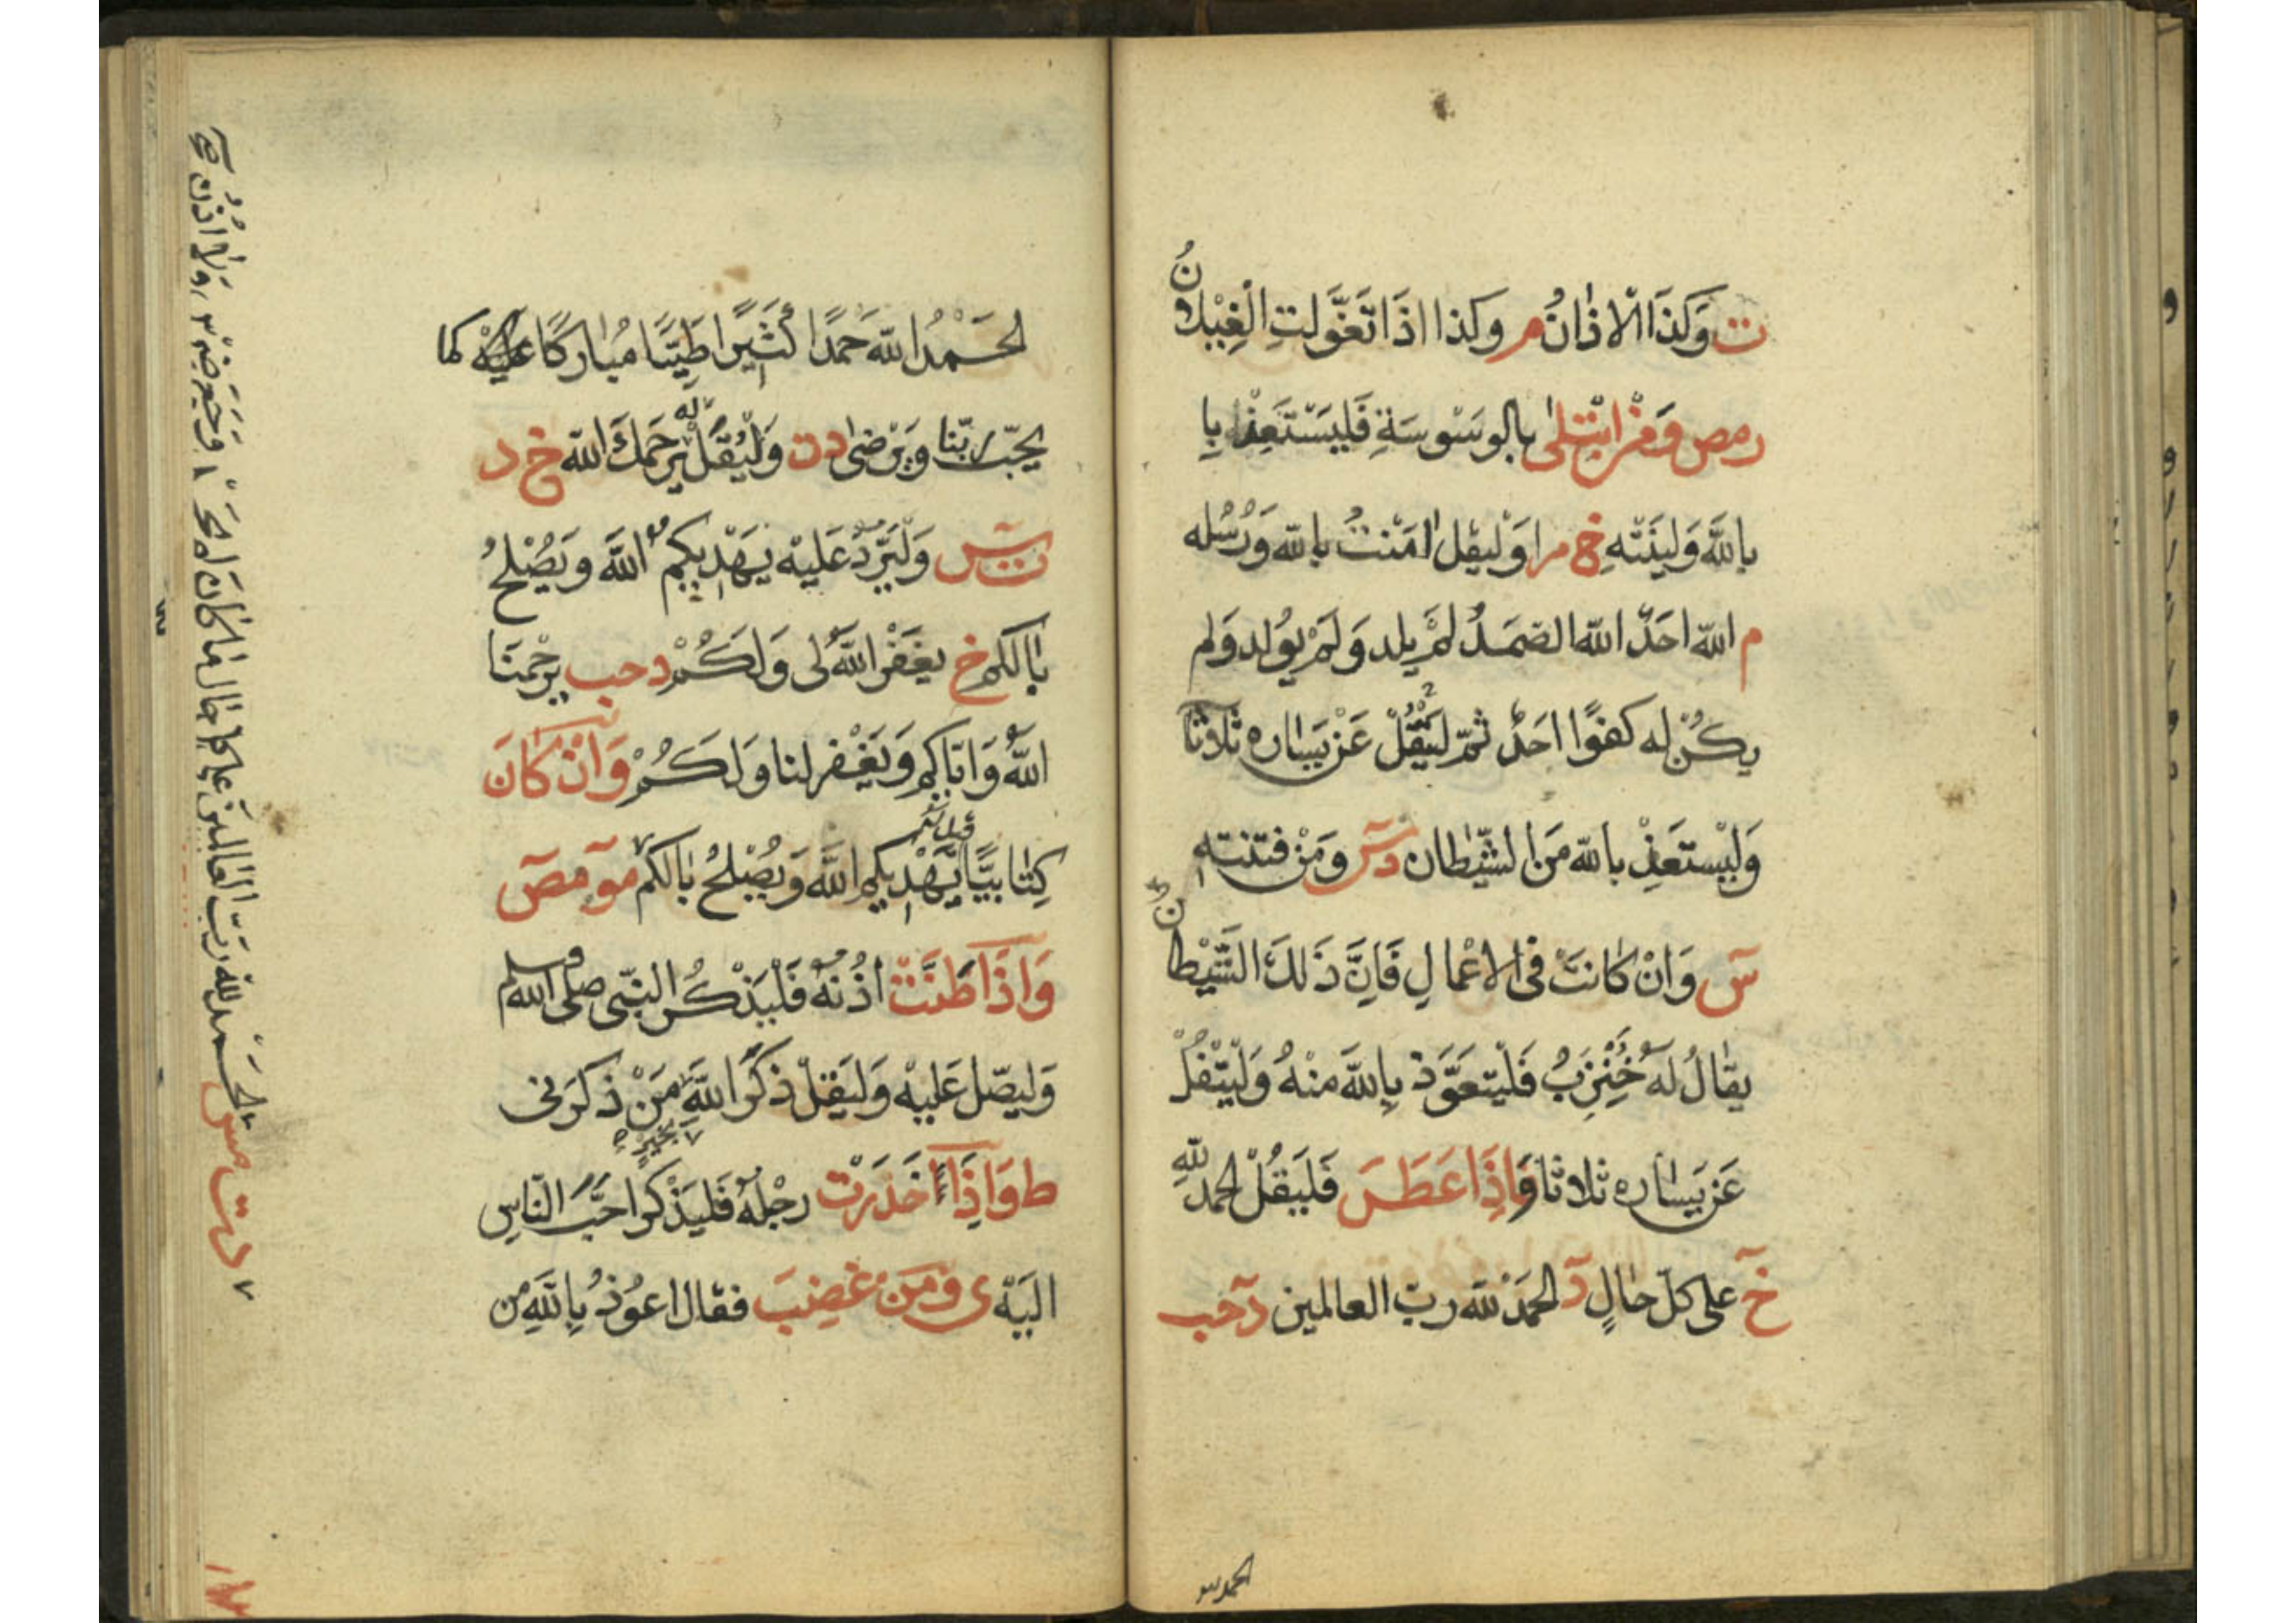 ت وَكَذَا الْاَذَانُ م وكذا اذَا تَغَوَّلتِ الْغِيْلَانُ
رمص وَمَنْ ابْتلى بالوسْوسَةِ فَليَسْتَعِذْ با
بالله وَلينَتهِ خ م را وَليقل امَنتُ بالله وَرُسُله
م الله احَدٌ الله الصَمَدُ لَمْ يلد وَلَمْ يُولد وَلم
يكُنْ له كفوًا احَدٌ ثمّ ليَتْفُلْ عَنْ يَسَاره ثلاثا
وَليْستعَذِ بالله مَنَ الشّيْطان دس وَمنْ فتنته
س وَانْ كَانتْ فى الاعْمالِ فَانَّ ذَلكَ الشَّيْطان
يقالُ لهُ خُنزِبُ فَليتعَوَّذ بِاللهِ منْهُ وَلْيتْفُلْ
عَنْ يَسَاره ثلاثا وَاِذَا عَطَسَ فَليَقُلْ الحمدُ للهِ
خ على كلّ حَالٍ د الحمَدُ لله ربّ العالمين د حب
الحمد لله
الحَمْدُ الله حَمدًا كثيرًا طَيّبًا مُبَاركًا عَليْهْ كما
يحبّ رَبّنا وَيَرْضى دت وَلْيُقَلْ لَه يَرحَمكَ الله خ د
ت س وَلْيَرّدُ عَليْه يَهْديكمُ اللهَ وَيَصْلحُ
بَالكم خ يغَفْر اللهُ لى وَلَكُمْ د حب يَرْحَمنَا
اللهُ وَايّاكم وَيَغْفر لنا وَلَكُمْ وَانْ كَانَ
كِتَابيًّا يَهْديكم اللهَ وَيصْلحُ بَالكم مو مص
وَاذَا طَنَّتْ اذُنهُ فَليَذْكُر النبّى صلى الله وسلم
وَليصّل عَليْه وَليَقلْ ذكَرَ اللهَ بخيرٍ مَنْ ذكَرَنى
ط وَاذَا خَدَرَتْ رجْلهُ فَليَذْكر احَبَّ النّاسِ
اليَه ى وَمَنْ غَضِبَ فقال اعوُذُ بِاللهِ من
الحَمْد لله رَبّ العَالمينَ عَلى كل حَال مَا كَان لم يَجِد وَجَعَ ضِرْس وَلَا اذُن
د ت س